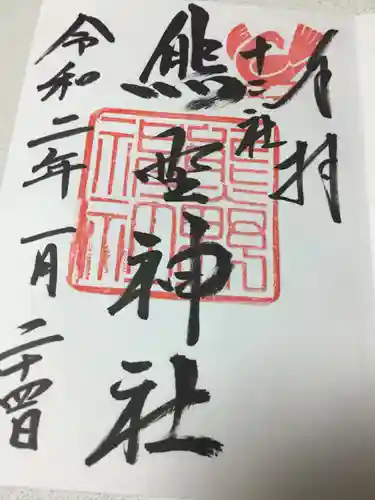 奉拝
十二社
熊野神社
令和二年一月二十四日